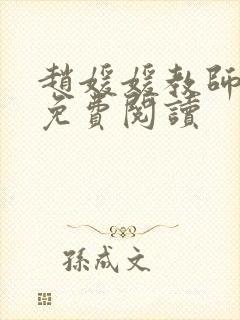 趙媛媛教師
免費閱讀
孫成文